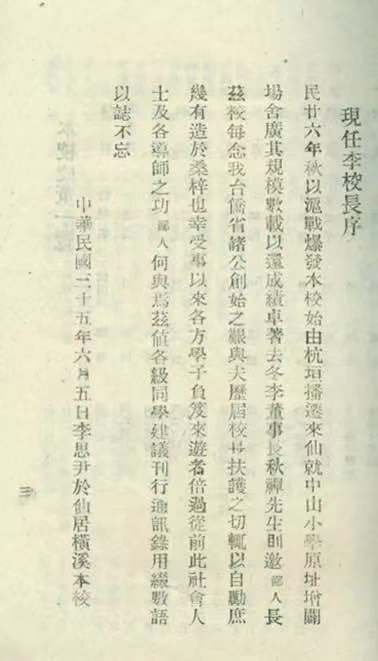 現任李校長序
民廿六年秋以滬戰爆發本校始由杭垣播遷來仙就中山小學原址增闢
場舍廣其規模數載以還成績卓著去冬李董事長秋禪先生則邀鄙人長
茲校每念我台僑省諸公創始之艱與夫歷屆校長扶護之切輒以自勵庶
幾有造於桑梓也幸受事以來各方學子負笈來遊者倍過從前此社會人
士及各導師之功鄙人何與焉茲値各級同學建議刊行通訊錄用綴數語
以誌不忘
中華民國三十五年六月五日李思尹於仙居橫溪本校
三